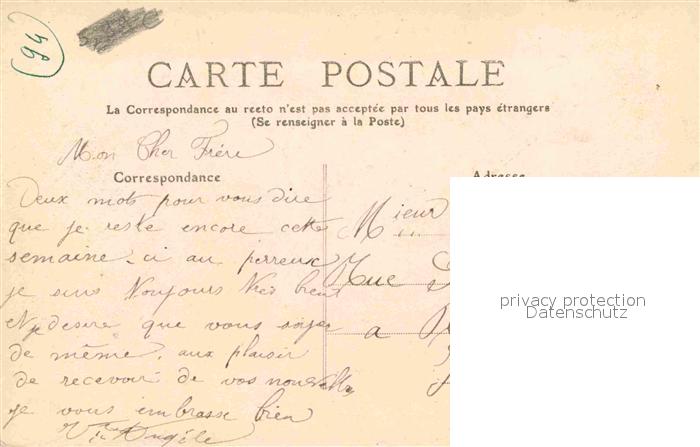 94
CARTE POSTALE
La Correspondance au recto n'est pas acceptée par tous les pays étrangers
(Se renseigner à la Poste)
Mon Cher Frére
Correspondance
Adresse
Deux mots pour vous dire
que je reste encore cette
semaine-ci au perreux
je suis toujours très bien
et desire que vous soyer
de même, aux plaisir
de recevoir de vos nouvelles
je vous embrasse bien
Angéle
Mieur
Rue
a
privacy protection
Datenschutz